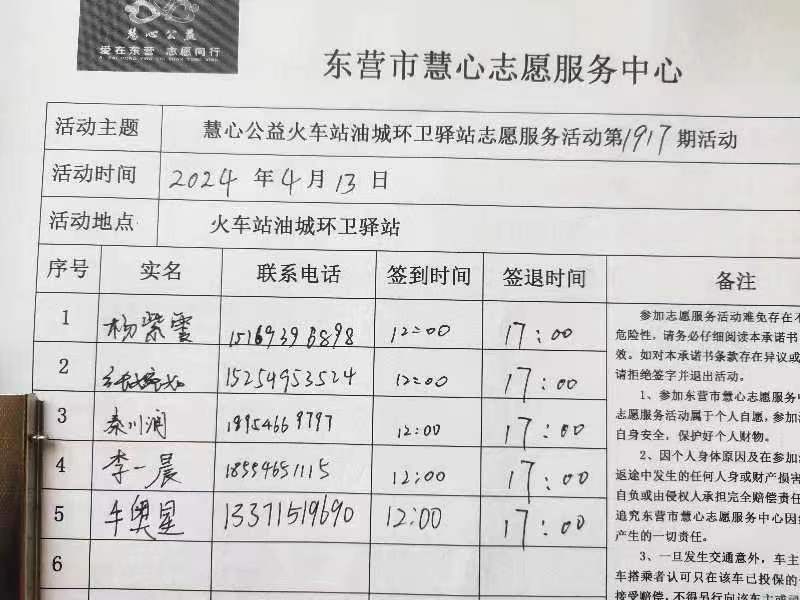 慧心公益
爱在东营 志愿同行
东营市慧心志愿服务中心
活动主题 慧心公益火车站油城环卫驿站志愿服务活动第1917期活动
活动时间 2024 年 4 月 13 日
活动地点 火车站油城环卫驿站
序号 实名 联系电话 签到时间 签退时间 备注
1 杨紫雪 15169396898 12:00 17:00
2 15254953524 12:00 17:00
3 秦川润 12:00 17:00
4 李一晨 18554651115 12:00 17:00
5 牛奥星 13371519690 12:00 17:00
6
参加志愿服务活动难免存在不
危险性，请务必仔细阅读本承诺书
效。如对本承诺书条款存在异议或
请拒绝签字并退出活动。
1、参加东营市慧心志愿服务
志愿服务活动属于个人自愿，参加
自身安全，保护好个人财物。
2、因个人身体原因及在参加
返途中发生的任何人身或财产损害
自负或由侵权人承担完全赔偿责任
追究东营市慧心志愿服务中心因
产生的一切责任。
3、一旦发生交通意外，车主
车搭乘者认可只在该车已投保的
接受赔偿，不得另行向该车主或